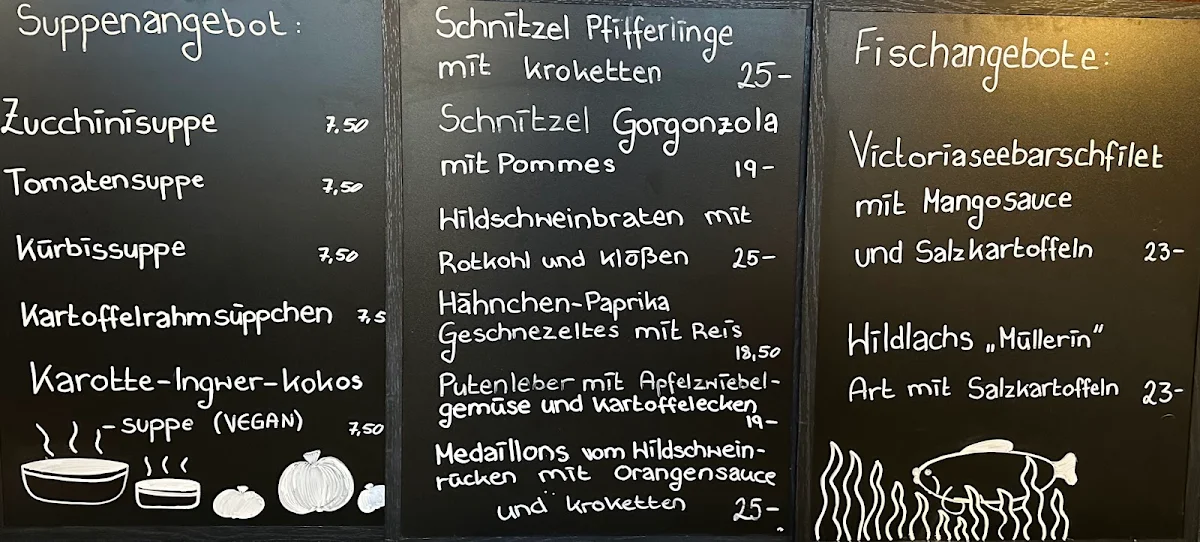 Suppenangebot:
Zucchinisuppe 7,50
Tomatensuppe 7,50
Kürbissuppe 7,50
Kartoffelrahmsüppchen 7,5
Karotte-Ingwer-Kokos
-suppe (VEGAN) 7,50
Schnitzel Pfifferlinge
mit Kroketten 25-
Schnitzel Gorgonzola
mit Pommes 19-
Wildschweinbraten mit
Rotkohl und Klößen 25-
Hähnchen-Paprika
Geschnezeltes mit Reis
18,50
Putenleber mit Apfelzwiebel-
gemüse und Kartoffelecken
19-
Medaillons vom Wildschwein-
rücken mit Orangensauce
und Kroketten 25-
Fischangebote:
Victoriaseebarschfilet
mit Mangosauce
und Salzkartoffeln 23-
Wildlachs „Müllerin"
Art mit Salzkartoffeln 23-